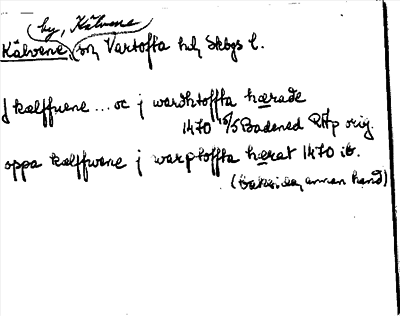 by, Kälvene
Kälvene sn, Vartofta hd, Skbgs l.
J kælffuene ... oc j wardhtoffta hærade
1470 10/5 Badened RAp orig.
oppa kælffwene j warptoffta hærat 1470 ib.
(baksidan, annan hand)